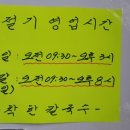 절기 영업시간
일: 오전 09:30~오후 3시
일: 오전 09:30~오후 8시
착한칼국수-